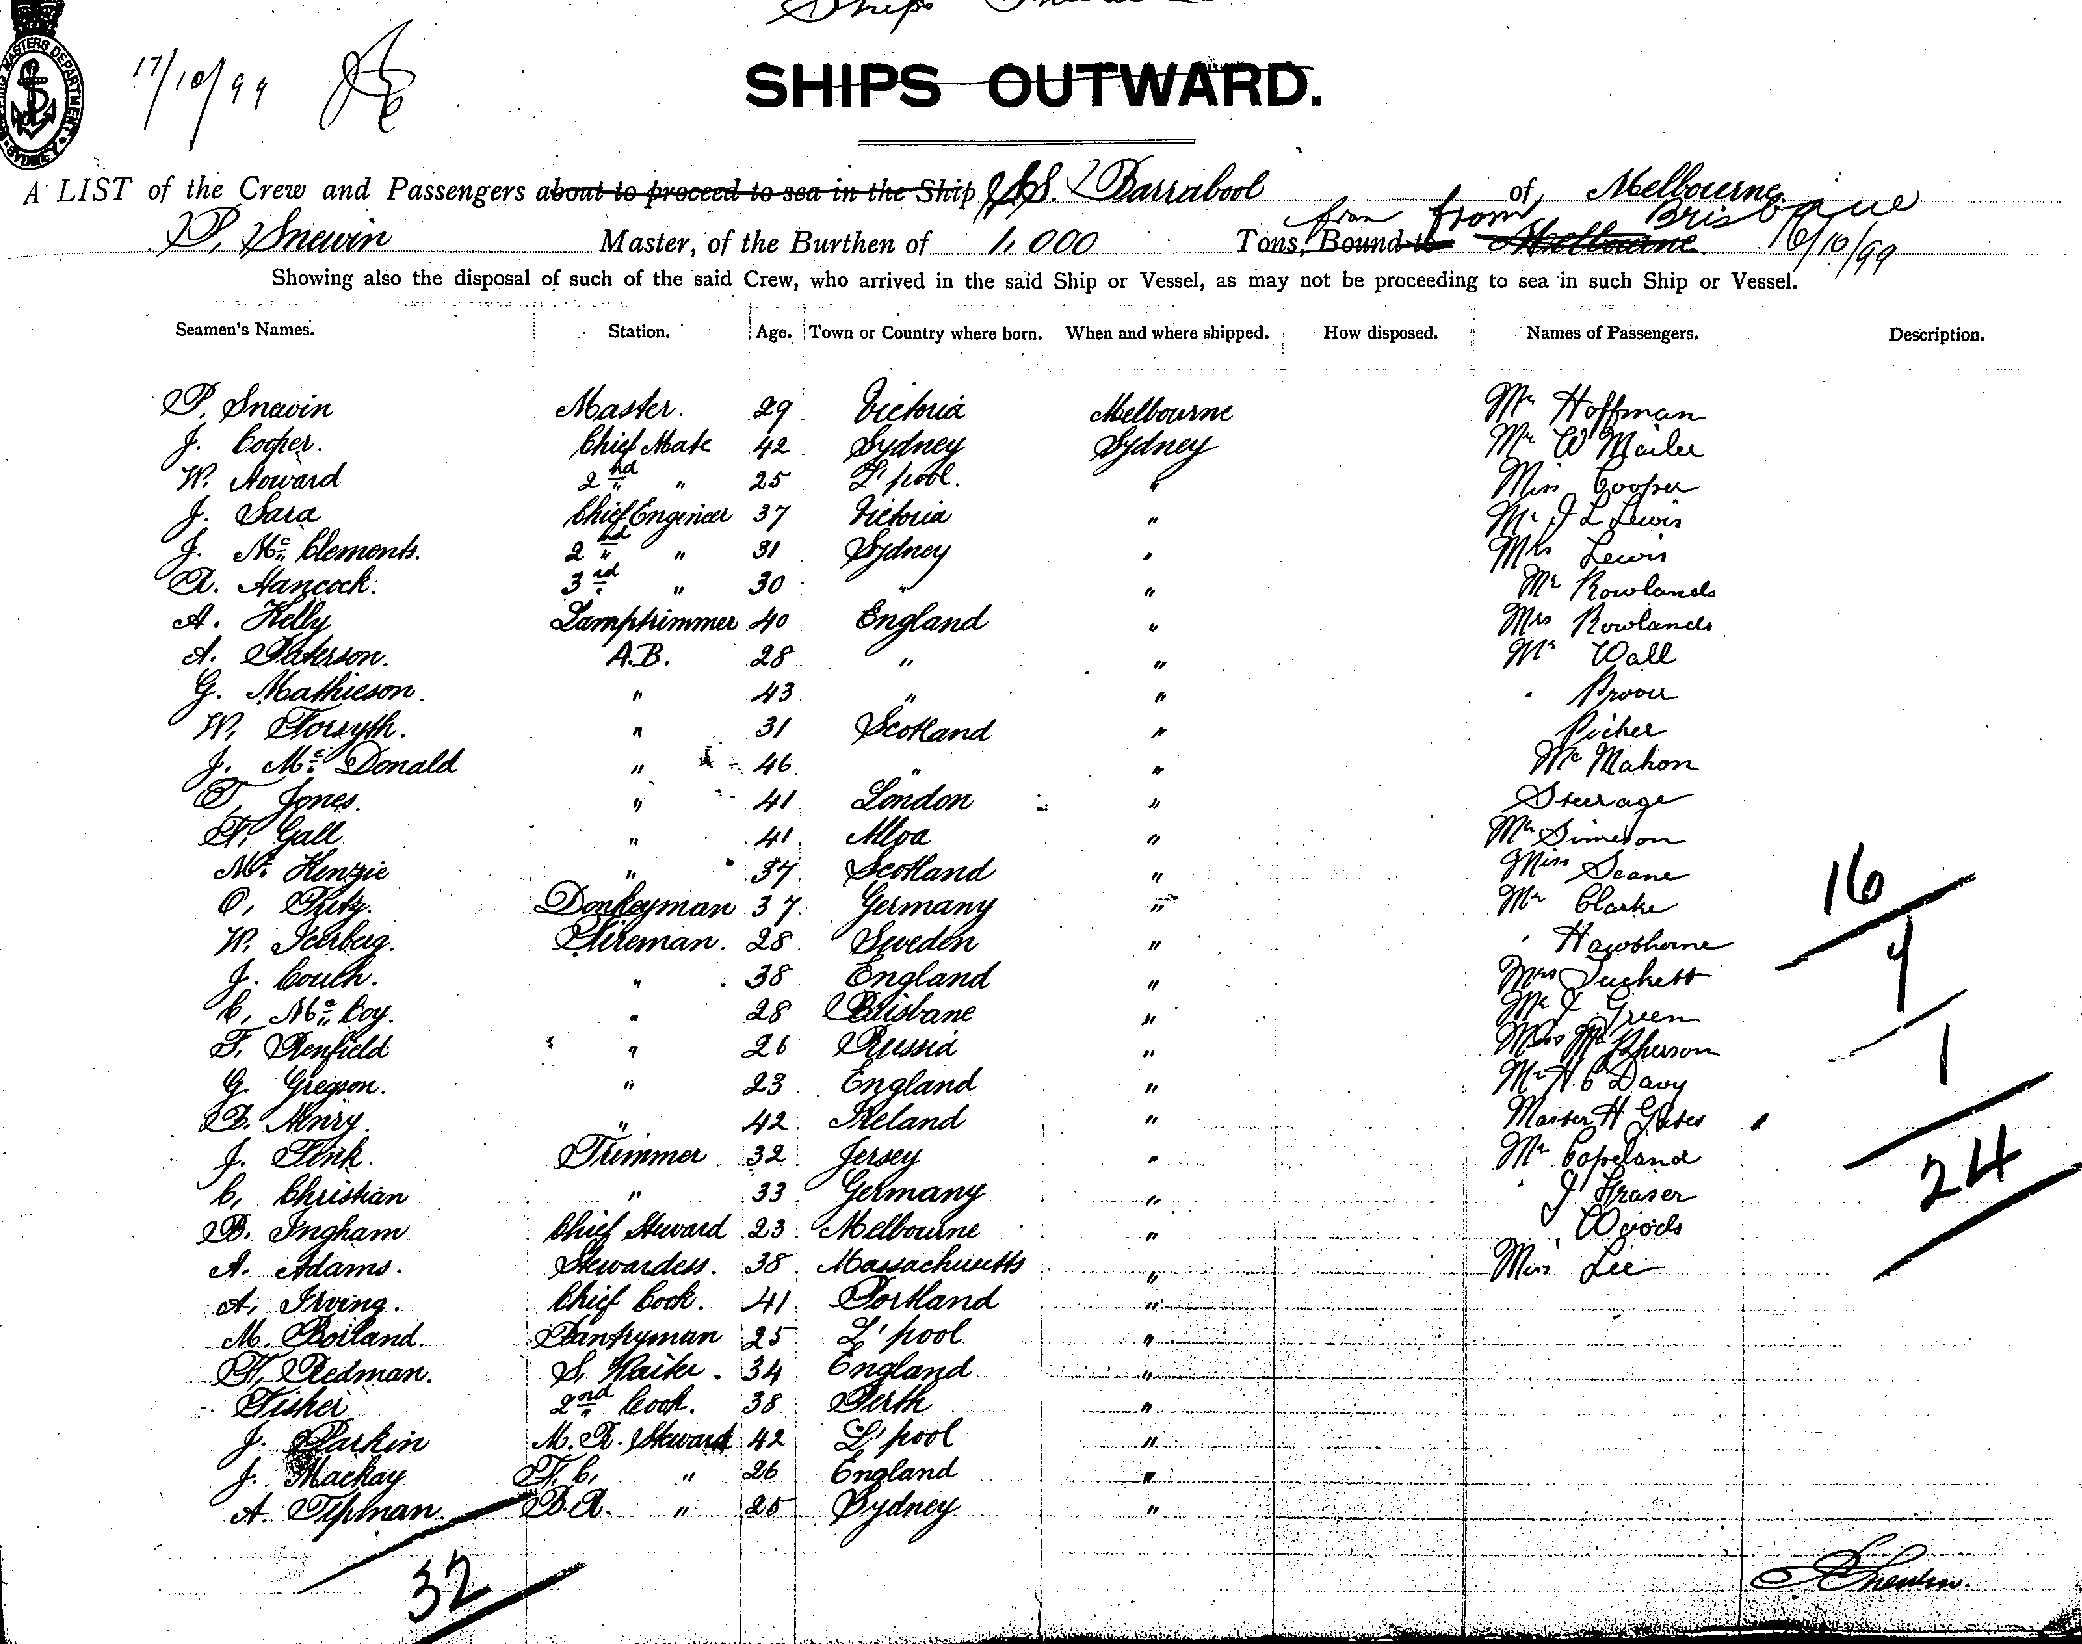 Ships
17/10/99
SHIPS OUTWARD.
A LIST of the Crew and Passengers about to proceed to sea in the Ship S.S. Barrabool of Melbourne
from from Brisbane
P. Snewin Master, of the Burthen of 1,000 Tons, Bound to Melbourne 16/10/99
Showing also the disposal of such of the said Crew, who arrived in the said Ship or Vessel, as may not be proceeding to sea in such Ship or Vessel.
Seamen's Names. Station. Age. Town or Country where born. When and where shipped. How disposed. Names of Passengers. Description.
P. Snewin Master. 29 Victoria Melbourne Mr Hoffman
J. Cooper. Chief Mate 42 Sydney Sydney Mr W Mailer
W. Howard 2nd " 25 L'pool. " Miss Cooper
J. Sara Chief Engineer 37 Victoria " Mr J L Lewis
J. Mc Clements. 2nd " 31 Sydney " Mrs Lewis
R. Hancock. 3rd " 30 " " Mr Rowlands
A. Kelly Lamptrimmer 40 England " Mrs Rowlands
A. Paterson. A.B. 28 " " Mr Wall
G. Mathieson. " 43 " "
W. Forsyth. " 31 Scotland " Picher
J. Mc Donald " 46 " " Mc Mahon
T. Jones. " 41 London " Steerage
F. Gall " 41 Alloa " Mr Simeson
Mc Kenzie " 37 Scotland " Miss Seane
O. Fritz. Donkeyman 37 Germany " Mr Clarke
W. Icerberg. Fireman. 28 Sweden " " Hawthorne
J. Couch. " 38 England " Mrs Tuckett
C. Mc Coy. " 28 Brisbane " Mr J Green
F. Renfield " 26 Russia " Miss McPherson
G. Gregson. " 23 England " Mr H C Davy
D. Henry. " 42 Ireland " Master H Yates
J. Fink. Trimmer 32 Jersey " Mr Copeland
C. Christian " 33 Germany " " J Fraser
B. Ingham Chief Steward 23 Melbourne " " Woods
A. Adams. Stewardess. 38 Massachusetts " Miss Lee
A. Irving. Chief Cook. 41 Portland "
M. Boiland. Pantryman 25 L'pool "
F. Redman. S. Waiter. 34 England "
Fisher 2nd Cook. 38 Perth "
J. Parkin M.R. Steward 42 L'pool "
J. Mackay F.C. " 26 England "
A. Tipman. B.R. " 25 Sydney "
16
1
24
32
P Snewin.